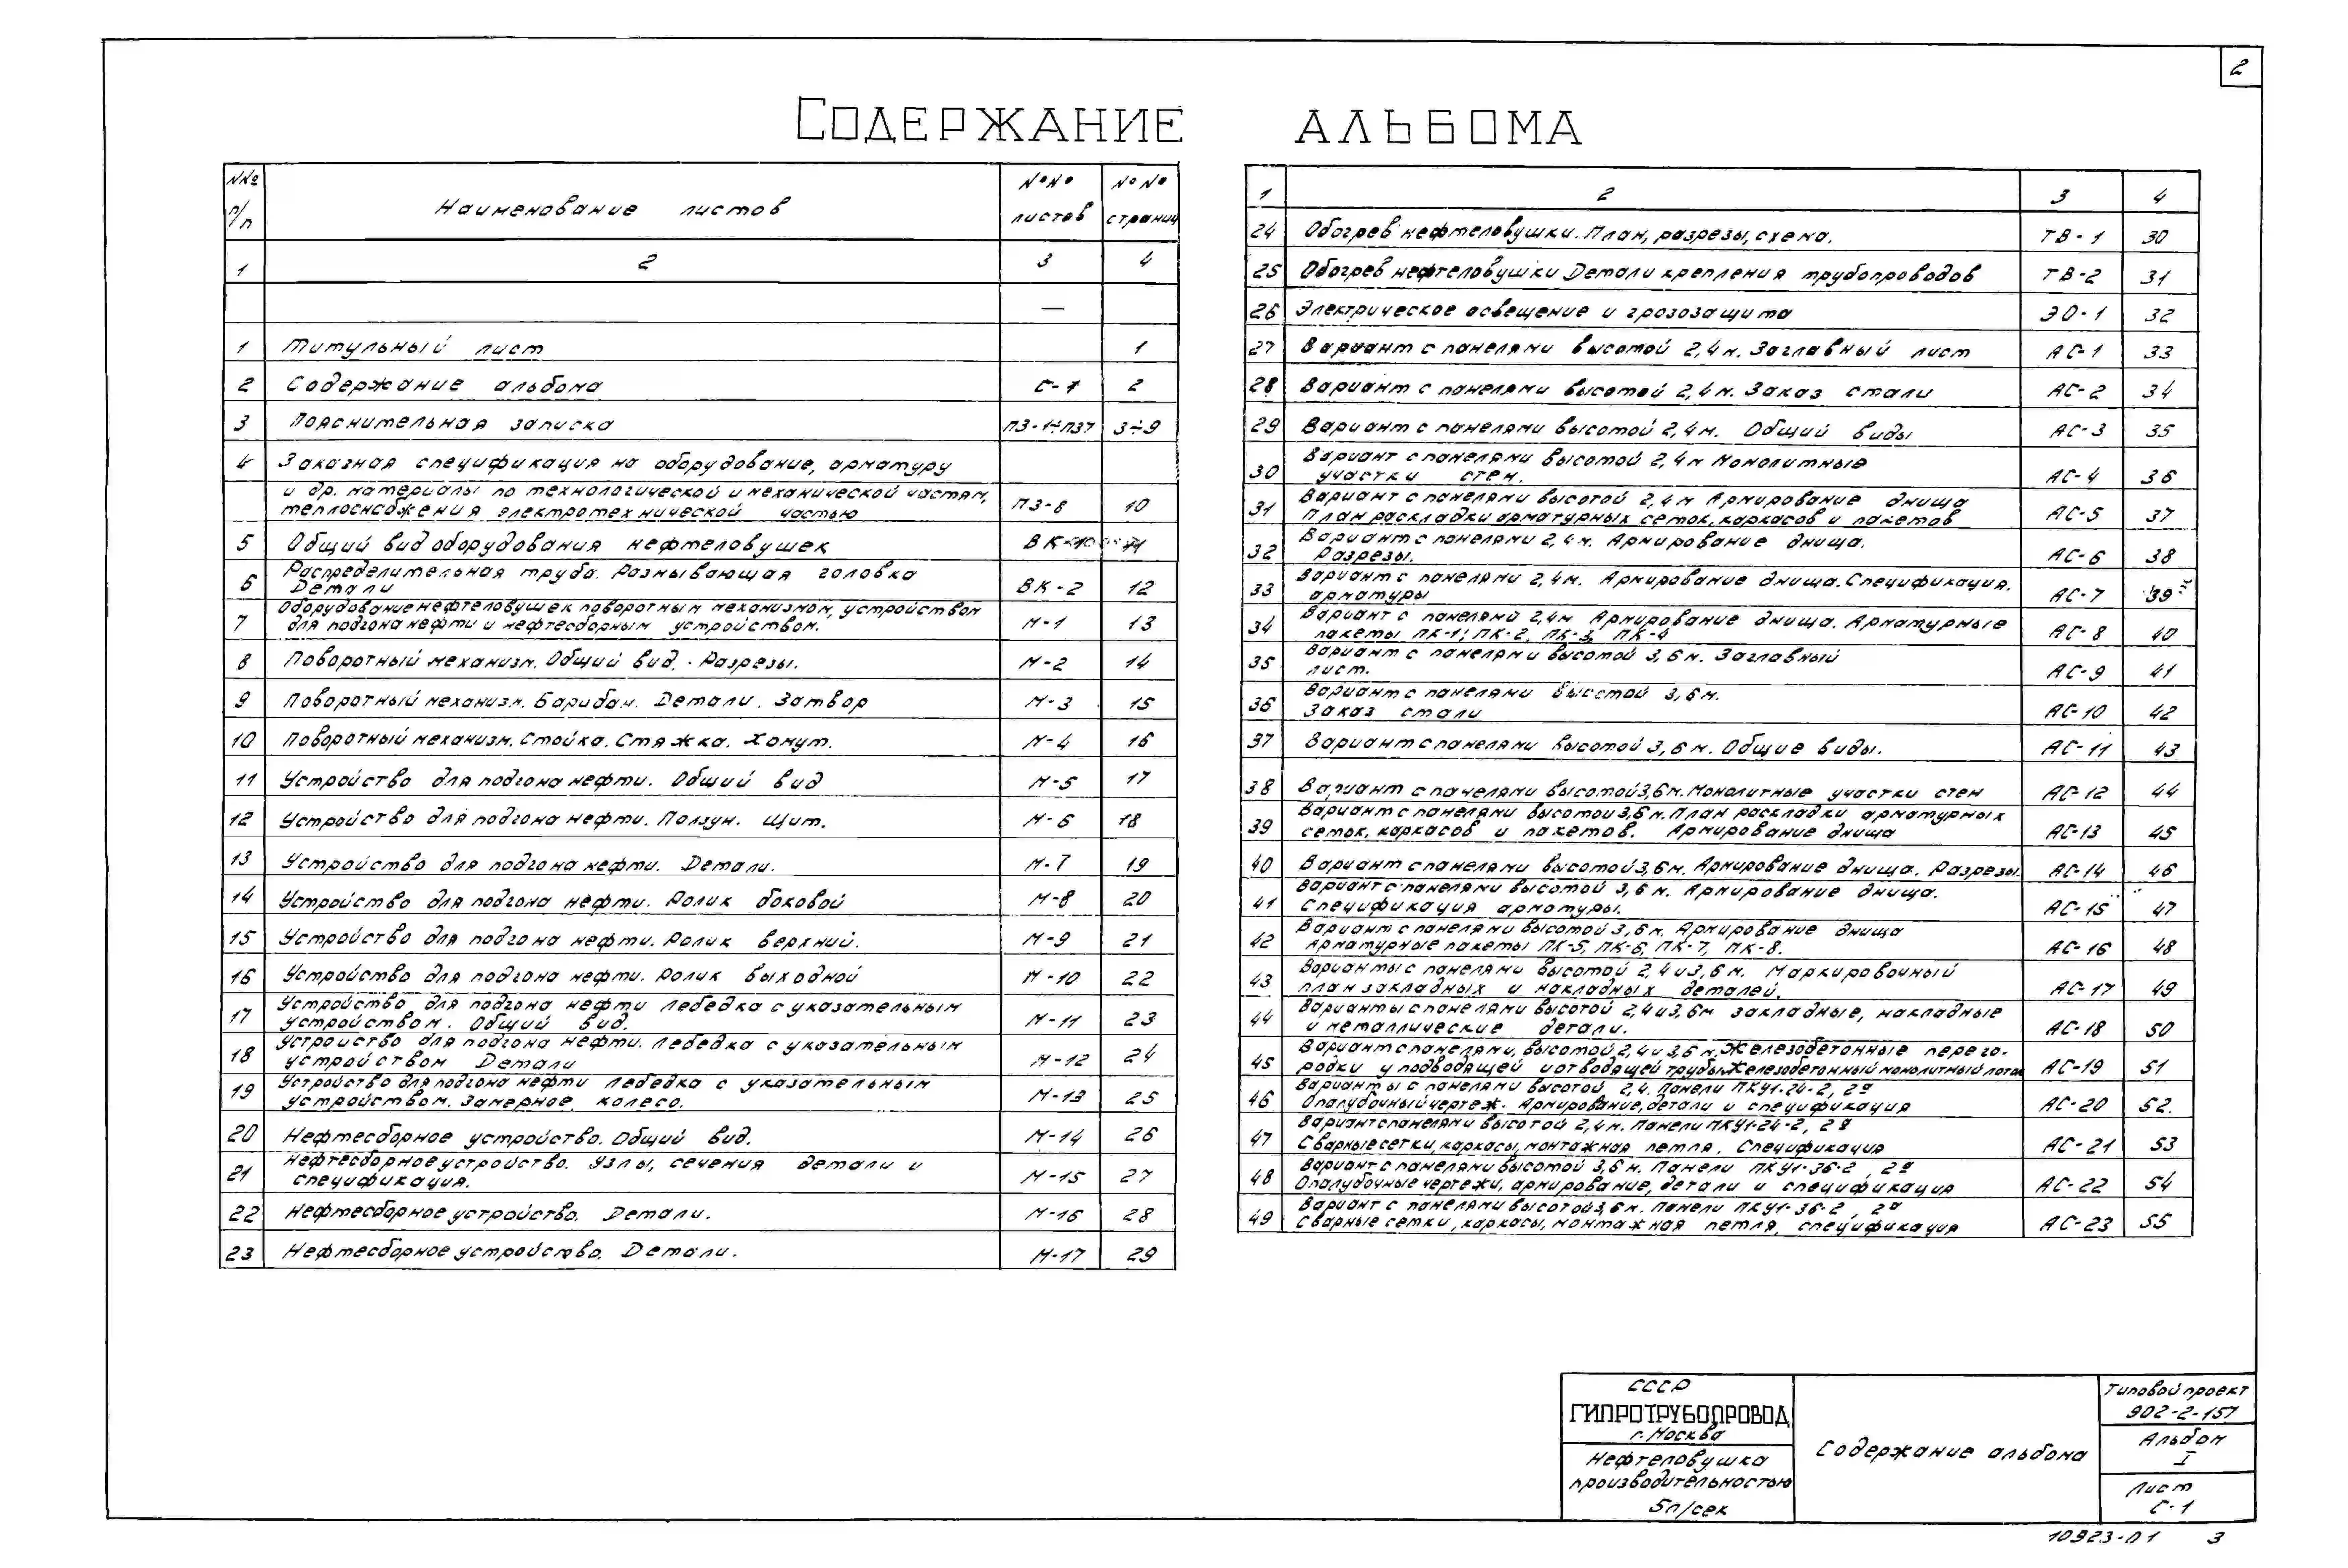 2
СОДЕРЖАНИЕ АЛЬБОМА
NNº п/п Наименование листов №№ листов №№ страниц
1 2 3 4
—
1 Титульный лист 1
2 Содержание альбома С-1 2
3 Пояснительная записка ПЗ-1÷ПЗ7 3÷9
4 Заказная спецификация на оборудование, арматуру
и др. материалы по технологической и механической частям,
теплоснабжения электротехнической частью ПЗ-8 10
5 Общий вид оборудования нефтеловушек ВК-1 11
6 Распределительная труба. Размывающая головка
Детали ВК-2 12
7 Оборудование нефтеловушек поворотным механизмом, устройством
для подгона нефти и нефтесборным устройством. М-1 13
8 Поворотный механизм. Общий вид. Разрезы. М-2 14
9 Поворотный механизм. Барабан. Детали. Затвор М-3 15
10 Поворотный механизм. Стойка. Стяжка. Хомут. М-4 16
11 Устройство для подгона нефти. Общий вид М-5 17
12 Устройство для подгона нефти. Ползун. Щит. М-6 18
13 Устройство для подгона нефти. Детали. М-7 19
14 Устройство для подгона нефти. Ролик боковой М-8 20
15 Устройство для подгона нефти. Ролик верхний. М-9 21
16 Устройство для подгона нефти. Ролик выходной М-10 22
17 Устройство для подгона нефти Лебедка с указательным
устройством. Общий вид. М-11 23
18 Устройство для подгона нефти. Лебедка с указательным
устройством Детали М-12 24
19 Устройство для подгона нефти Лебедка с указательным
устройством. Замерное колесо. М-13 25
20 Нефтесборное устройство. Общий вид. М-14 26
21 Нефтесборное устройство. Узлы, сечения детали и
спецификация. М-15 27
22 Нефтесборное устройство. Детали. М-16 28
23 Нефтесборное устройство. Детали. М-17 29
1 2 3 4
24 Обогрев нефтеловушки. План, разрезы, схема. ТВ-1 30
25 Обогрев нефтеловушки Детали крепления трубопроводов ТВ-2 31
26 Электрическое освещение и грозозащита ЭО-1 32
27 Вариант с панелями высотой 2,4м. Заглавный лист АС-1 33
28 Вариант с панелями высотой 2,4м. Заказ стали АС-2 34
29 Вариант с панелями высотой 2,4м. Общий виды АС-3 35
30 Вариант с панелями высотой 2,4м Монолитные
участки стен. АС-4 36
31 Вариант с панелями высотой 2,4м Армирование днища
План раскладки арматурных сеток, каркасов и пакетов АС-5 37
32 Вариант с панелями 2,4м. Армирование днища.
Разрезы. АС-6 38
33 Вариант с панелями 2,4м. Армирование днища. Спецификация.
арматуры АС-7 39
34 Вариант с панелями 2,4м Армирование днища. Арматурные
пакеты ПК-1; ПК-2, ПК-3, ПК-4 АС-8 40
35 Вариант с панелями высотой 3,6м. Заглавный
лист. АС-9 41
36 Вариант с панелями высотой 3,6м.
Заказ стали АС-10 42
37 Вариант с панелями высотой 3,6м. Общие виды. АС-11 43
38 Вариант с панелями высотой 3,6м. Монолитные участки стен АС-12 44
39 Вариант с панелями высотой 3,6м. План раскладки арматурных
сеток, каркасов и пакетов. Армирование днища АС-13 45
40 Вариант с панелями высотой 3,6м. Армирование днища. Разрезы. АС-14 46
41 Вариант с панелями высотой 3,6м. Армирование днища.
Спецификация арматуры. АС-15 47
42 Вариант с панелями высотой 3,6м. Армирование днища
Арматурные пакеты ПК-5, ПК-6, ПК-7, ПК-8. АС-16 48
43 Варианты с панелями высотой 2,4 и 3,6м. Маркировочный
план закладных и накладных деталей. АС-17 49
44 Варианты с панелями высотой 2,4 и 3,6м закладные, накладные
и металлические детали. АС-18 50
45 Вариант с панелями, высотой 2,4 и 3,6м. Железобетонные перего-
родки у подводящей и отводящей трубы. Железобетонный монолитный лоток АС-19 51
46 Варианты с панелями высотой 2,4. Панели ПКУ1-24-2, 2ª
Опалубочный чертеж. Армирование, детали и спецификация АС-20 52.
47 Вариант с панелями высотой 2,4м. Панели ПКУ1-24-2, 2ª
Сварные сетки, каркасы, монтажная петля. Спецификация АС-21 53
48 Вариант с панелями высотой 3,6м. Панели ПКУ1-36-2, 2ª
Опалубочные чертежи, армирование, детали и спецификация АС-22 54
49 Вариант с панелями высотой 3,6м. Панели ПКУ1-36-2, 2ª
Сварные сетки, каркасы, монтажная петля, спецификация АС-23 55
СССР
ГИПРОТРУБОПРОВОД
г. Москва
Нефтеловушка
производительностью
5л/сек
Содержание альбома
Типовой проект
902-2-157
Альбом
I
Лист
С-1
10923-01 3